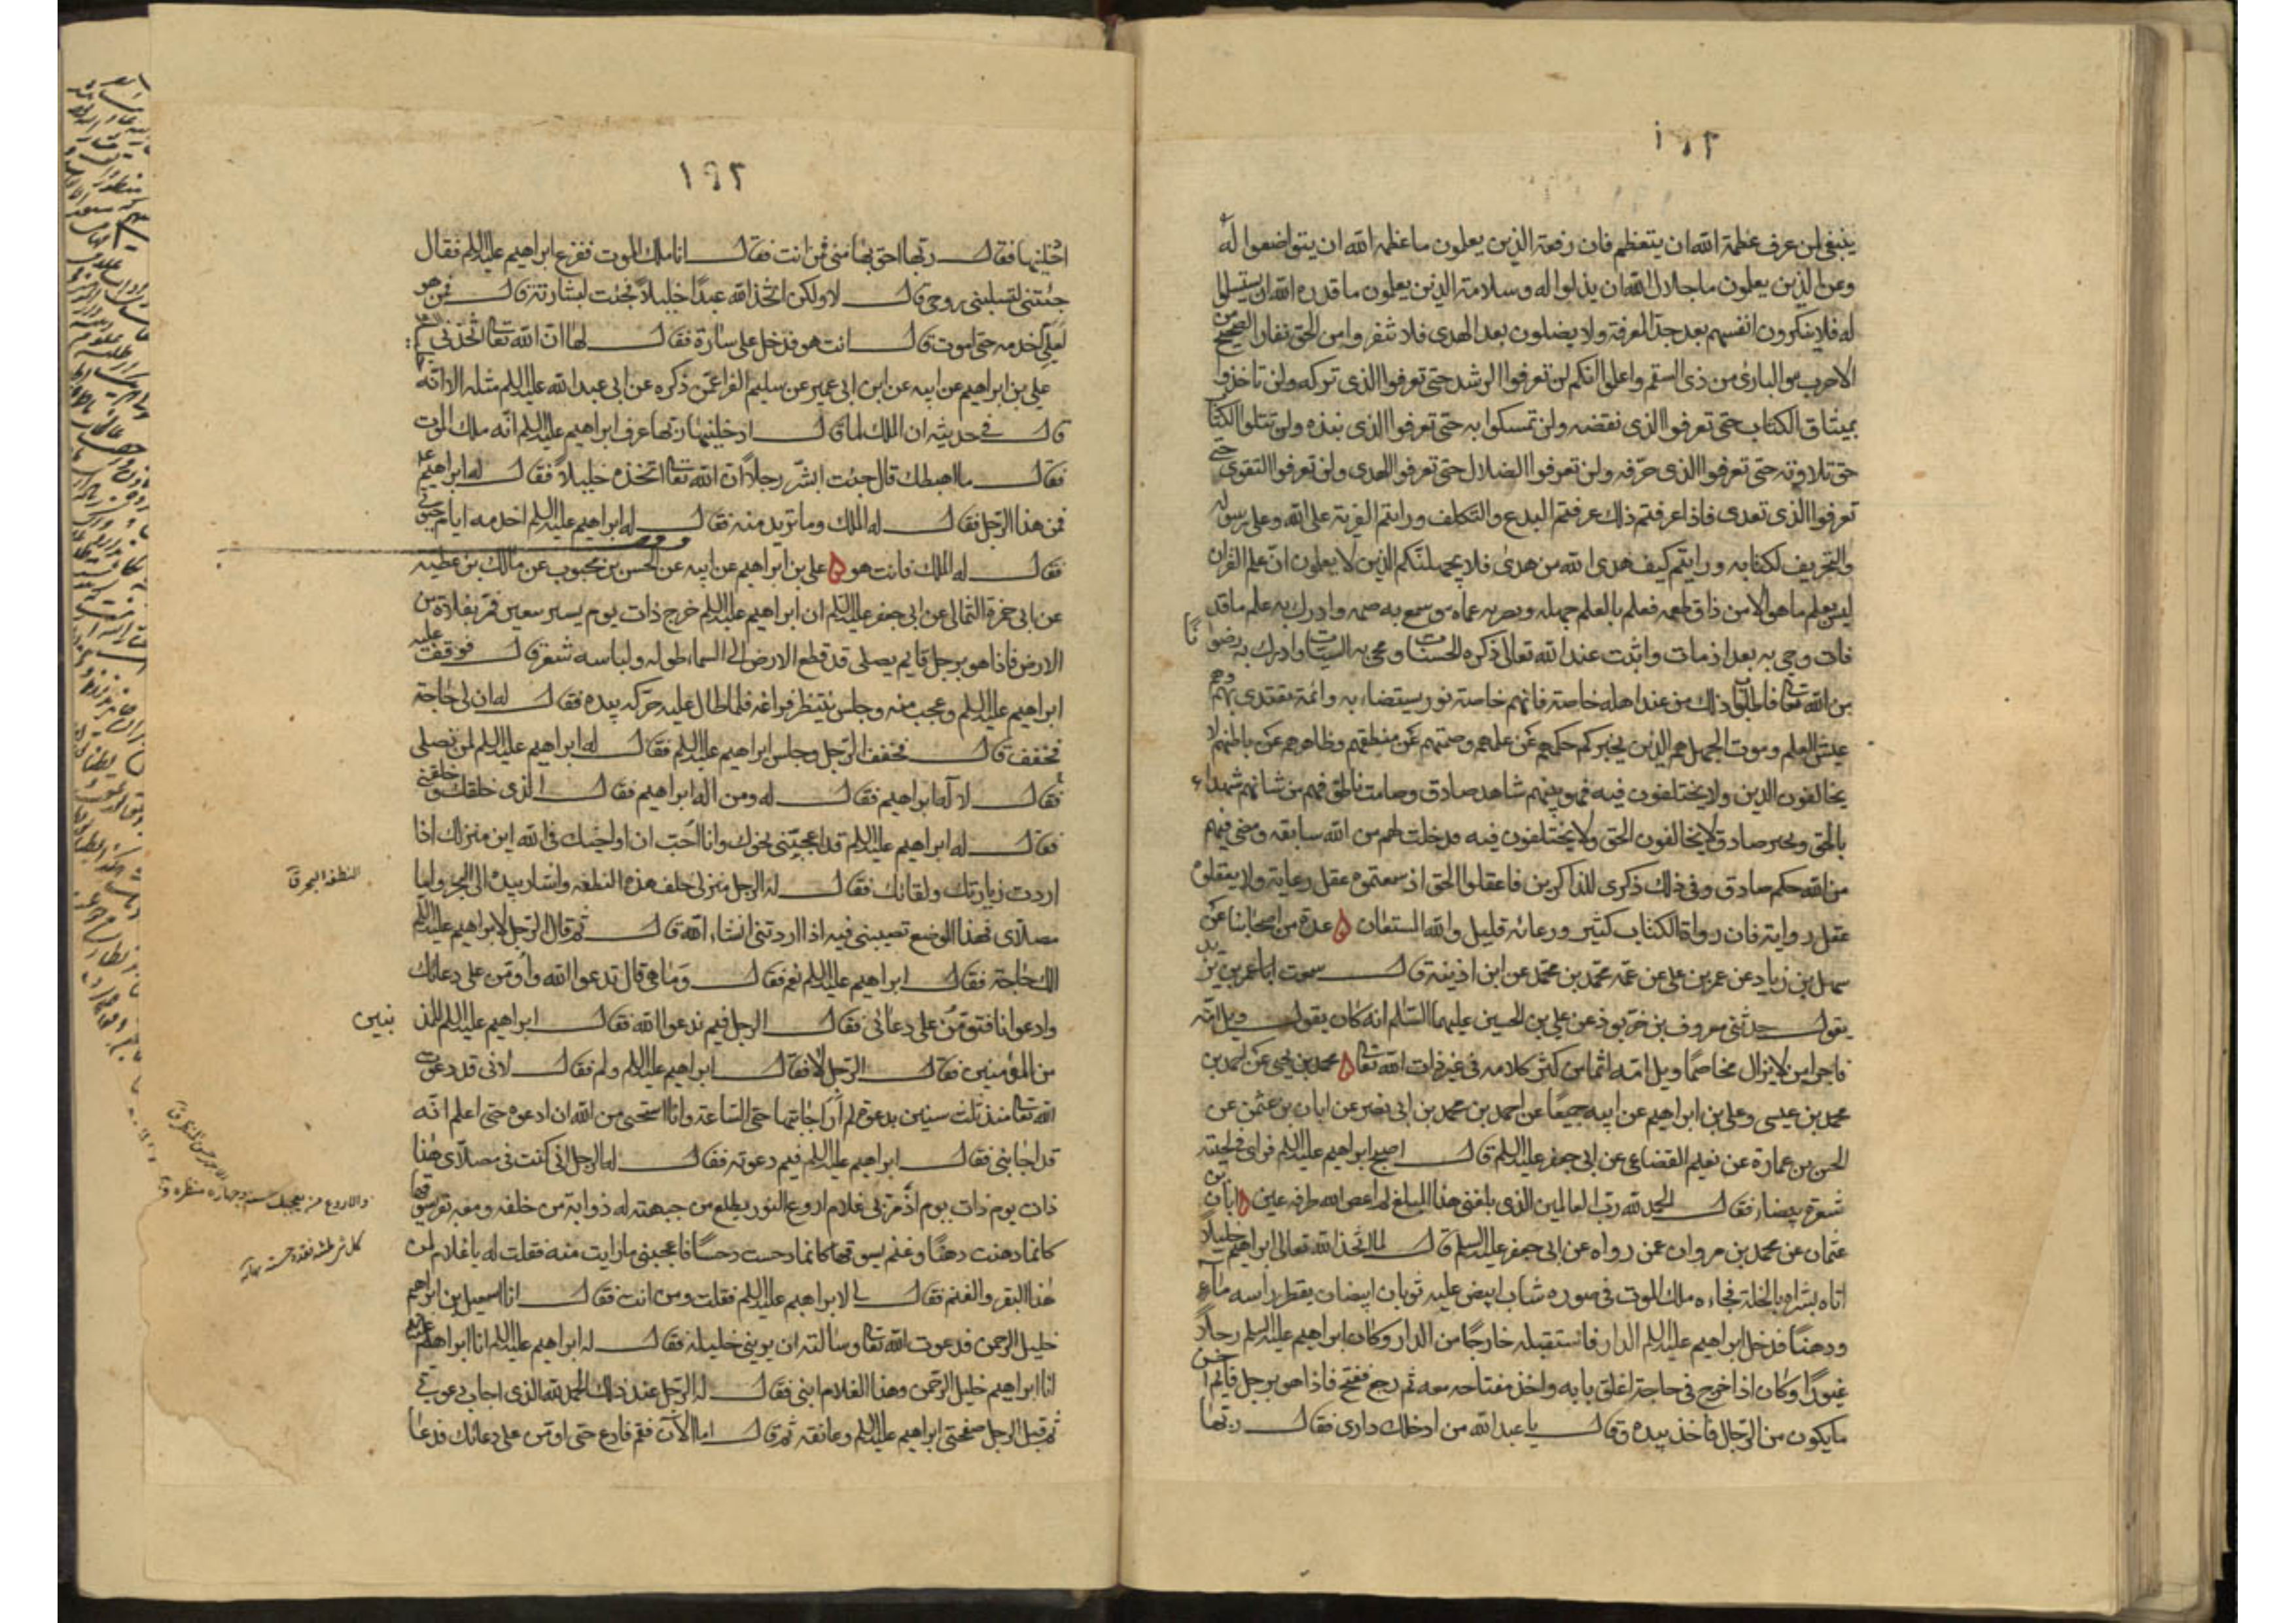 ينبغى لمن عرف عظمة الله ان يتعظم فان رفعة الذين يعلمون ما عظمة الله ان يتواضعوا له
وعز الذين يعلمون ما جلال الله ان يذلوا له وسلامة الذين يعلمون ما قدره الله ان يستسلموا
له فلا ينكرون انفسهم بعد حد المعرفة ولا يضلون بعد الهدى فلا تنفروا من الحق نفار الصحيح من
الاجرب والبارئ من ذى السقم واعلموا انكم لن تعرفوا الرشد حتى تعرفوا الذى تركه ولن تاخذوا
بميثاق الكتاب حتى تعرفوا الذى نقضه ولن تمسكوا به حتى تعرفوا الذى نبذه ولن تتلوا الكتاب
حق تلاوته حتى تعرفوا الذى حرّفه ولن تعرفوا الضلال حتى تعرفوا الهدى ولن تعرفوا التقوى حتى
تعرفوا الذى تعدى فاذا عرفتم ذلك عرفتم البدع والتكلف ورايتم الفرية على الله وعلى رسوله
والتحريف لكتابه ورايتم كيف هدى الله من هدى فلا يجهلنّكم الذين لا يعلمون انّ علم القران
ليس يعلم ما هو الا من ذاق طعمه فعلم بالعلم جهله وبصر به عماه وسمع به صممه وادرك به علم ما قد
فات وحى به بعد اذ مات واثبت عند الله تعالى ذكره الحسنات ومحى به السيئات وادرك به رضوانًا
من الله تعا فاطلبوا ذلك من عند اهله خاصة فانهم خاصة نور يستضاء به وائمة يقتدى بهم وهم
عيش العلم وموت الجهل هم الذين يخبركم حكمهم عن علمهم وصمتهم عن منطقهم وظاهرهم عن باطنهم لا
يخالفون الدين ولا يختلفون فيه فهو بينهم شاهد صادق وصامت ناطق فهم من شانهم شهداء
بالحق ومخبر صادق لا يخالفون الحق ولا يختلفون فيه قد خلت لهم من الله سابقه ومضى فيهم
من الله حكم صادق وفى ذلك ذكرى للذاكرين فاعقلوا الحق اذ سمعتموه عقل رعاية ولا تعقلوه
عقل رواية فان رواة الكتاب كثير ورعاته قليل والله المستعان ه عدة من اصحابنا عن
سهل بن زياد عن عمر بن على عن عمّه محمّد بن محمّد عن ابن اذينة قال سمعت ابا عمر بن يزيد
يقول حدثنى معروف بن خرّبوذ عن على بن الحسين عليهما السّلم انه كان يقول ويل امّه
فاجرا من لا يزال مخاصمًا ويل امّه اثما من كثر كلامه فى غير ذات الله تعا ه محمد بن يحيى عن احمد بن
محمد بن عيسى وعلى بن ابراهيم عن ابيه جميعًا عن احمد بن محمد بن ابى نصر عن ابان بن عثمن عن
الحسن بن عمارة عن نعيم القضاعى عن ابى جعفر عليه السلم قال اصبح ابراهيم عليه السلم فراى فى لحيته
شعرة بيضاء فقال الحمد لله ربّ العالمين الذى بلغنى هذا المبلغ لم اعص الله طرفة عين ه ابان بن
عثمان عن محمد بن مروان عمن رواه عن ابى جعفر عليه السلم قال لما اتّخذ الله تعالى ابراهيم خليلاً
اتاه بشراه بالخلة فجاءه ملك الموت فى صورة شاب ابيض عليه ثوبان ابيضان يقطر راسه ماء
ودهنًا فدخل ابراهيم عليه السلم الدار فاستقبله خارجًا من الدار وكان ابراهيم عليه السلم رجلاً
غيورًا وكان اذا خرج فى حاجة اغلق بابه واخذ مفتاحه معه ثم رجع ففتح فاذا هو برجل قائم احسن
ما يكون من الرّجال فاخذ بيده وقال يا عبد الله من ادخلك دارى فقال ربّها
١٩٢
ادخلنيها فقال ربّها احق بها منى فمن انت فقال انا ملك الموت ففزع ابراهيم عليه السلم فقال
جئتنى لتسلبنى روحى قال لا ولكن اتّخذ الله عبدًا خليلاً فجئت لبشارته قال فمن هو
لعلّى اخدمه حتى اموت قال انت هو فدخل على سارة فقال لها انّ الله تعا اتّخذنى
على بن ابراهيم عن ابيه عن ابن ابى عمير عن سليم الفرا عمّن ذكره عن ابى عبد الله عليه السلم مثله الا انّه
قال فى حديثه ان الملك لما قال ادخلنيها ربّها عرف ابراهيم عليه السلم انّه ملك الموت
فقال ما اهبطك قال جئت ابشّر رجلاً انّ الله تعا اتخذه خليلاً فقال له ابراهيم
فمن هذا الرّجل فقال له الملك وما تريد منه فقال له ابراهيم عليه السلم اخدمه ايام حيوتى
فقال له الملك فانت هو ه على بن ابراهيم عن ابيه عن الحسن بن محبوب عن مالك بن عطيه
عن ابى حمزة الثمالى عن ابى جعفر عليه السّلم ان ابراهيم عليه السلم خرج ذات يوم يسير ببعير فمرّ بفلاة من
الارض فاذا هو برجل قايم يصلى قد قطع الارض الى السماء طوله ولباسه شعر قال فوقف عليه
ابراهيم عليه السلم وعجب منه وجلس ينتظر فراغه فلما طال عليه حرّكه بيده فقال له ان لى حاجة
فخفف قال فخفف الرّجل وجلس ابراهيم عليه السلم فقال له ابراهيم عليه السلم لمن تصلى
فقال لاله ابراهيم فقال له ومن اله ابراهيم فقال الذى خلقك وخلقنى
فقال له ابراهيم عليه السلم قد اعجبتنى نحوك وانا احبّ ان اواخيك فى الله اين منزلك اذا
اردت زيارتك ولقائك فقال له الرجل منزلى خلف هذه النطفه واشار بيده الى البحر واما
مصلّاى فهذا الموضع تصيبنى فيه اذا اردتنى انشاء الله قال ثم قال الرّجل لابراهيم عليه السلم
الك حاجة فقال ابراهيم عليه السلم نعم فقال وما هى قال تدعوا الله واؤمّن على دعائك
وادعوا انا فتؤمّن على دعائى فقال الرجل فيم ندعوا الله فقال ابراهيم عليه السلم للمذنبين
من المؤمنين فقال الرّجل لا فقال ابراهيم عليه السلم ولم فقال لانى قد دعوت
الله تعا منذ ثلث سنين بدعوة لم ار اجابتها حتى السّاعة وانا استحيى من الله ان ادعوه حتى اعلم انّه
قد اجابنى فقال ابراهيم عليه السلم فيم دعوته فقال له الرجل انى كنت فى مصلّاى هذا
ذات يوم ذات يوم اذ مرّ بى غلام اروع النور يطلع من جبهته له ذوابة من خلفه ومعه بقر يسوقها
كانما دهنت دهنًا وغنم يسوقها كانما دحست دحسًا فاعجبنى ما رايت منه فقلت له يا غلام لمن
هذا البقر والغنم فقال لى لابراهيم عليه السلم فقلت ومن انت فقال انا اسمعيل بن ابراهيم
خليل الرحمن فدعوت الله تعا وسالته ان يرينى خليله فقال له ابراهيم عليه السلم انا ابراهيم
انا ابراهيم خليل الرّحمن وهذا الغلام ابنى فقال له الرّجل عند ذلك الحمد لله الذى اجاب دعوتى
ثم قبل الرجل صفحتى ابراهيم عليه السلم وعانقه ثم قال اما الآن فقم فادع حتى اومّن على دعائك فدعا
النطفه البحر ق